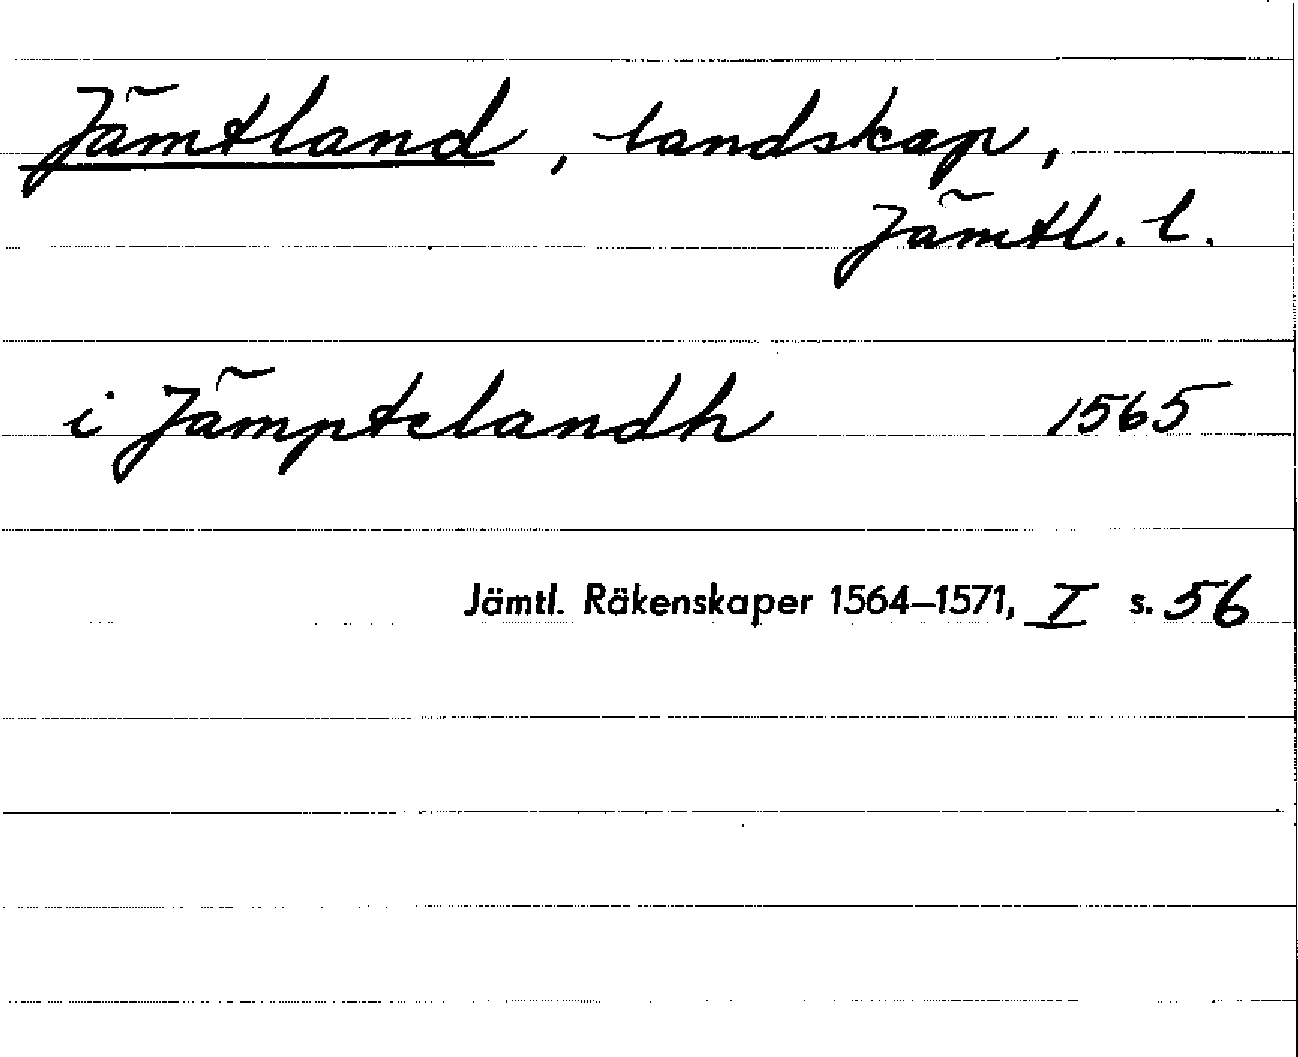 Jämtland, landskap,
Jämtl. l.
i Jämptelandh 1565
Jämtl. Räkenskaper 1564–1571, I s. 56